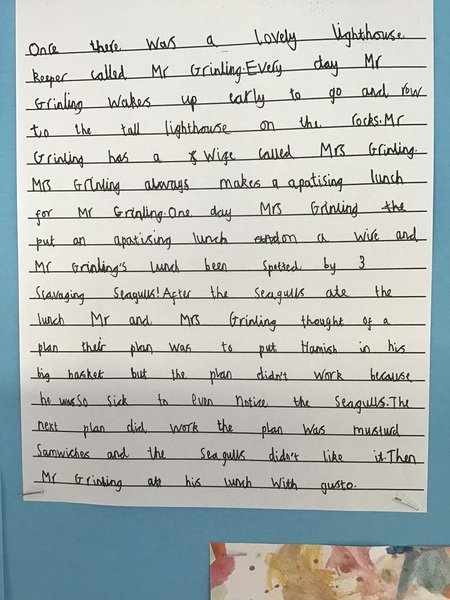 Once there was a lovely lighthouse
keeper called Mr Grinling. Every day Mr
Grinling wakes up early to go and row
to the tall lighthouse on the rocks. Mr
Grinling has a wige called MRS Grinling.
MRS Grinling always makes a apatising lunch
for Mr Grinling. One day MRS Grinling the
put an apatising lunch and on a wire and
Mr Grinling's lunch been spotted by 3
Scavaging Seagulls! After the seagulls ate the
lunch Mr and MRS Grinling thought of a
plan their plan was to put Hamish in his
big basket but the plan didn't work because
he was so sick to even notice the seagulls. The
next plan did work the plan was musturd
Samwiches and the Seagulls didn't like it. Then
Mr Grinling ate his lunch with gusto.